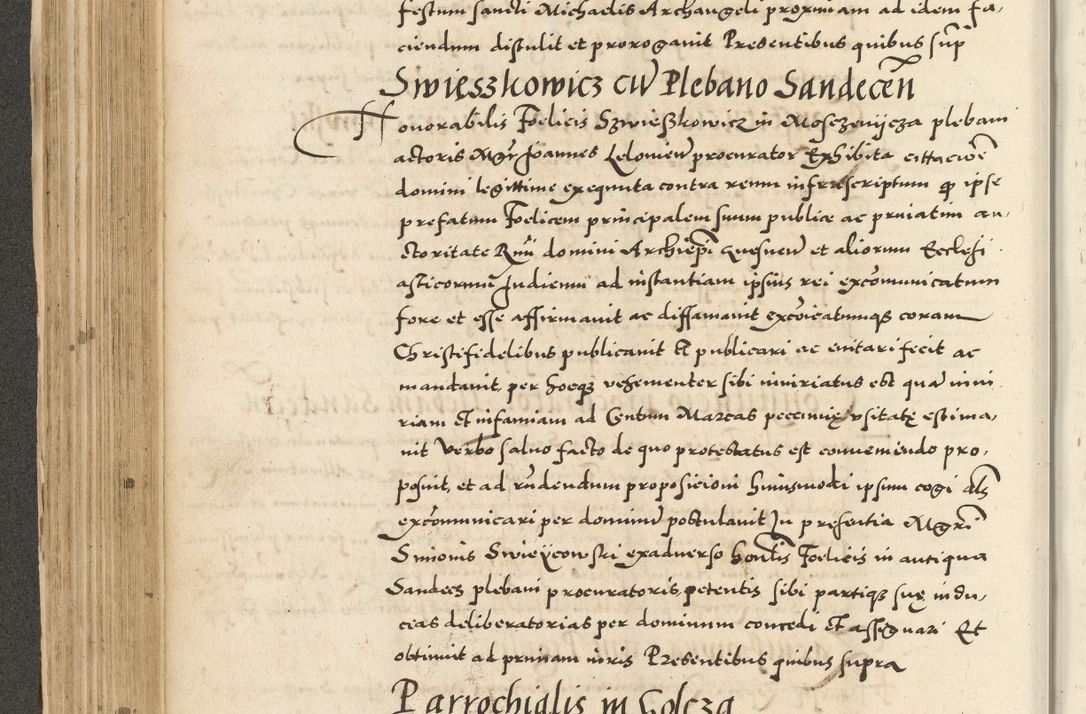 festum sancti Michaelis Archangeli proximam ad idem fa-
ciendum distulit et prorogavit Presentibus quibus sup
Swięszkowicz cu Plebano Sandecen
Honorabilis Foelicis Szwieszkowicz in Mosczenijcza plebani
actoris Mgr Joannes Leloniew procurator Exhibita cittacione
domini legittime exequuta contra reum infrascriptum q ipse
prefatum Foelicem principalem suum publice ac privatim au-
ctoritate Rmi domini Archiepi Gnesnen et aliorum Ecclesi
asticorum Judicum ad instantiam ipsius rei excomunicatum
fore et esse affirmavit ac diffamavit excoicatumq coram
Christifidelibus publicavit Et publicari ac evitari fecit ac
mandavit, per hocq vehementer sibi iniuriatus est quam iniu
riam Et infamiam ad Centum Marcas pecunię usitatę estima-
vit Verbo salvo facto de quo protestatus est conveniendo pro-
posuit, et ad rndendum proposicioni huiusmodi ipsum cogi als
excomunicari per dominum postulavit In presentia Mgri
Simonis Swieÿcowski exadverso honlis Foelicis in antiqua
Sandecz plebani procuratoris, petentis sibi partiq suę indu-
ceas deliberatorias per dominum concedi Et assignari Et
obtinuit ad primam iuris Presentibus quibus supra
Parrochialis in Golcza